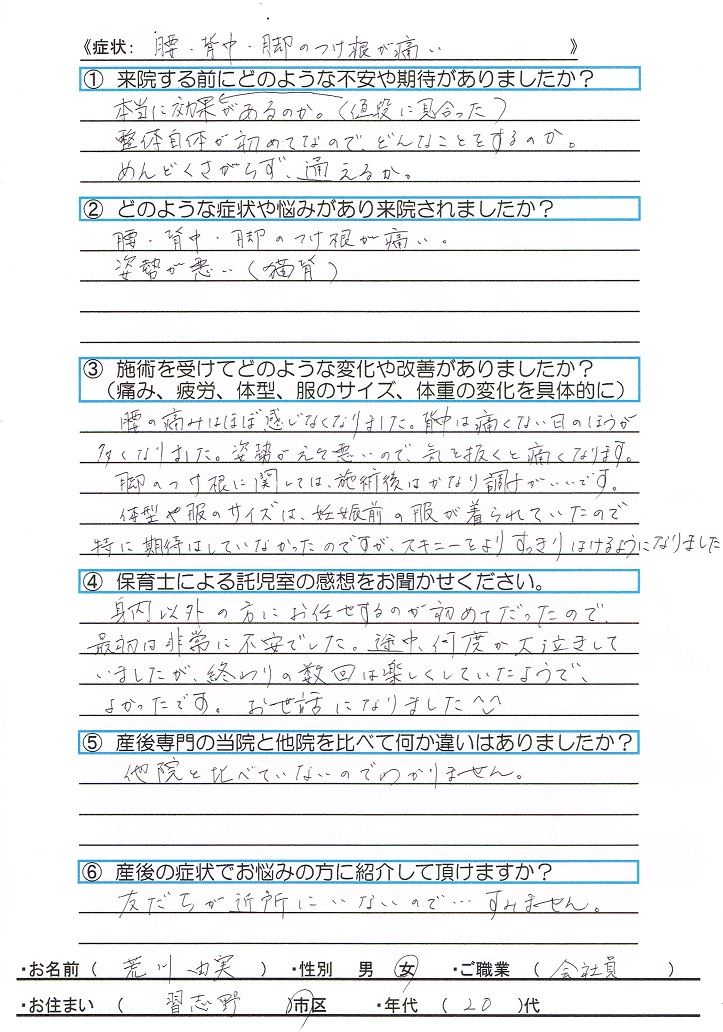 《症状: 腰・背中・脚のつけ根が痛い 》
① 来院する前にどのような不安や期待がありましたか?
本当に効果があるのか。(値段に見合った)
整体自体が初めてなので、どんなことをするのか。
めんどくさがらず、通えるか。
② どのような症状や悩みがあり来院されましたか?
腰・背中・脚のつけ根が痛い。
姿勢が悪い(猫背)
③ 施術を受けてどのような変化や改善がありましたか?
(痛み、疲労、体型、服のサイズ、体重の変化を具体的に)
腰の痛みはほぼ感じなくなりました。背中は痛くない日のほうが
多くなりました。姿勢が元々悪いので、気を抜くと痛くなります。
脚のつけ根に関しては、施術後はかなり調子がいいです。
体型や服のサイズは、妊娠前の服が着られていたので
特に期待はしていなかったのですが、スキニーをよりすっきりはけるようになりました
④ 保育士による託児室の感想をお聞かせください。
身内以外の方にお任せするのが初めてだったので、
最初は非常に不安でした。途中、何度か大泣きして
いましたが、終わりの数回は楽しくしていたようで、
よかったです。お世話になりました^^
⑤ 産後専門の当院と他院を比べて何か違いはありましたか?
他院と比べていないのでわかりません。
⑥ 産後の症状でお悩みの方に紹介して頂けますか?
友だちが近所にいないので…すみません。
・お名前( 荒川 由実 ) ・性別 男 女 ・ご職業( 会社員 )
・お住まい( 習志野 )市区 ・年代(20)代